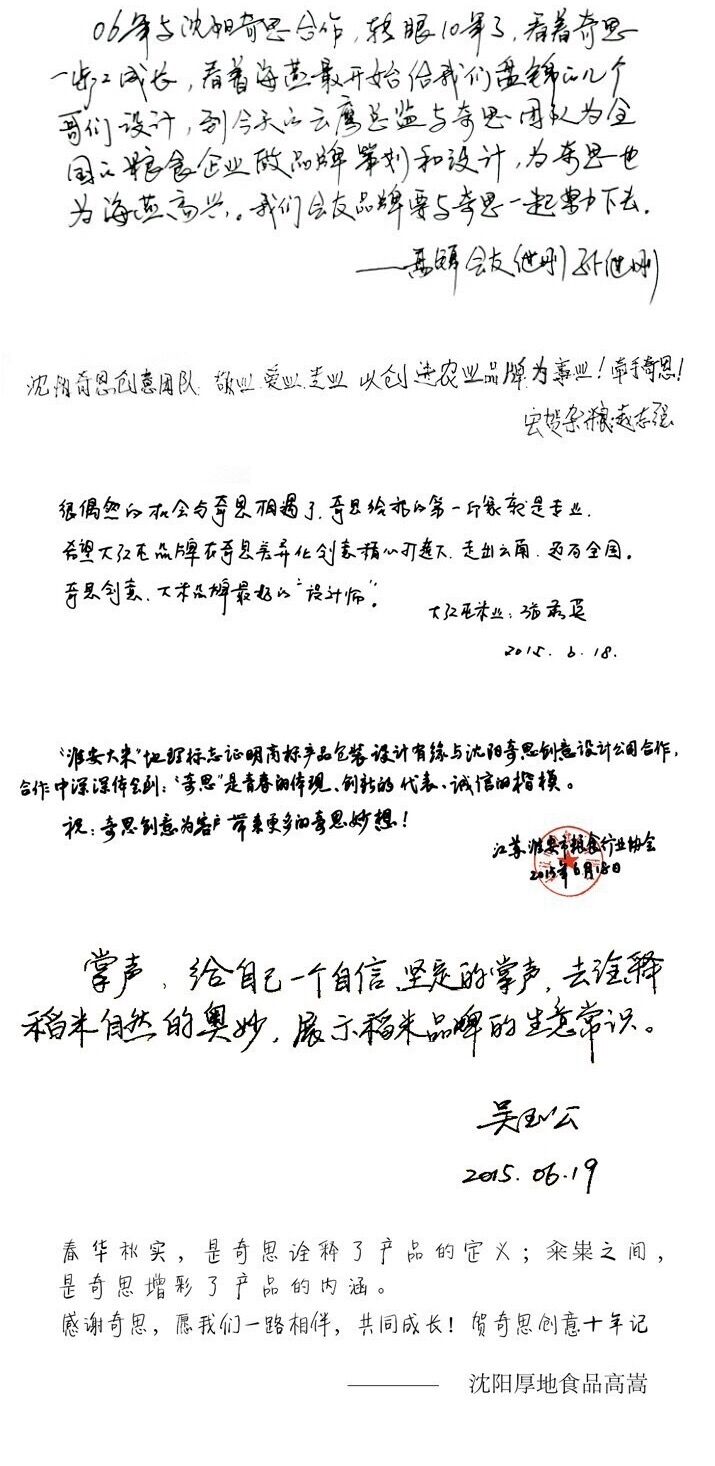 06年与沈阳奇思合作，转眼10年了，看着奇思
一步步成长，看着海燕最开始给我们盘锦的几个
哥们设计，到今天的云鹰总监与奇思团队为全
国的粮食企业做品牌策划和设计，为奇思也
为海燕高兴。我们会友品牌要与奇思一起努力下去。
——盘锦会友继刚 孙继刚
沈阳奇思创意团队 敬业 爱业 专业 以创进农业品牌为事业！牵手奇思！
宏贺杂粮：赵志强
很偶然的机会与奇思相遇了，奇思给我的第一印象就是专业，
希望大红屯品牌在奇思差异化创意精心打造下，走出云南，迈向全国。
奇思创意，大米品牌最好的“设计师”。
大红屯米业：
2015. 6. 18.
“淮安大米”地理标志证明商标产品包装设计有缘与沈阳奇思创意设计公司合作，
合作中深深体会到：“奇思”是青春的体现、创新的代表、诚信的楷模。
祝：奇思创意为客户带来更多的奇思妙想！
江苏淮安市粮食行业协会
2015年6月18日
掌声，给自己一个自信、坚定的掌声，去诠释
稻米自然的奥妙，展示稻米品牌的生意常识。
吴玉公
2015.06.19
春华秋实，是奇思诠释了产品的定义；籴粜之间，
是奇思增彩了产品的内涵。
感谢奇思，愿我们一路相伴，共同成长！贺奇思创意十年记
———— 沈阳厚地食品高嵩